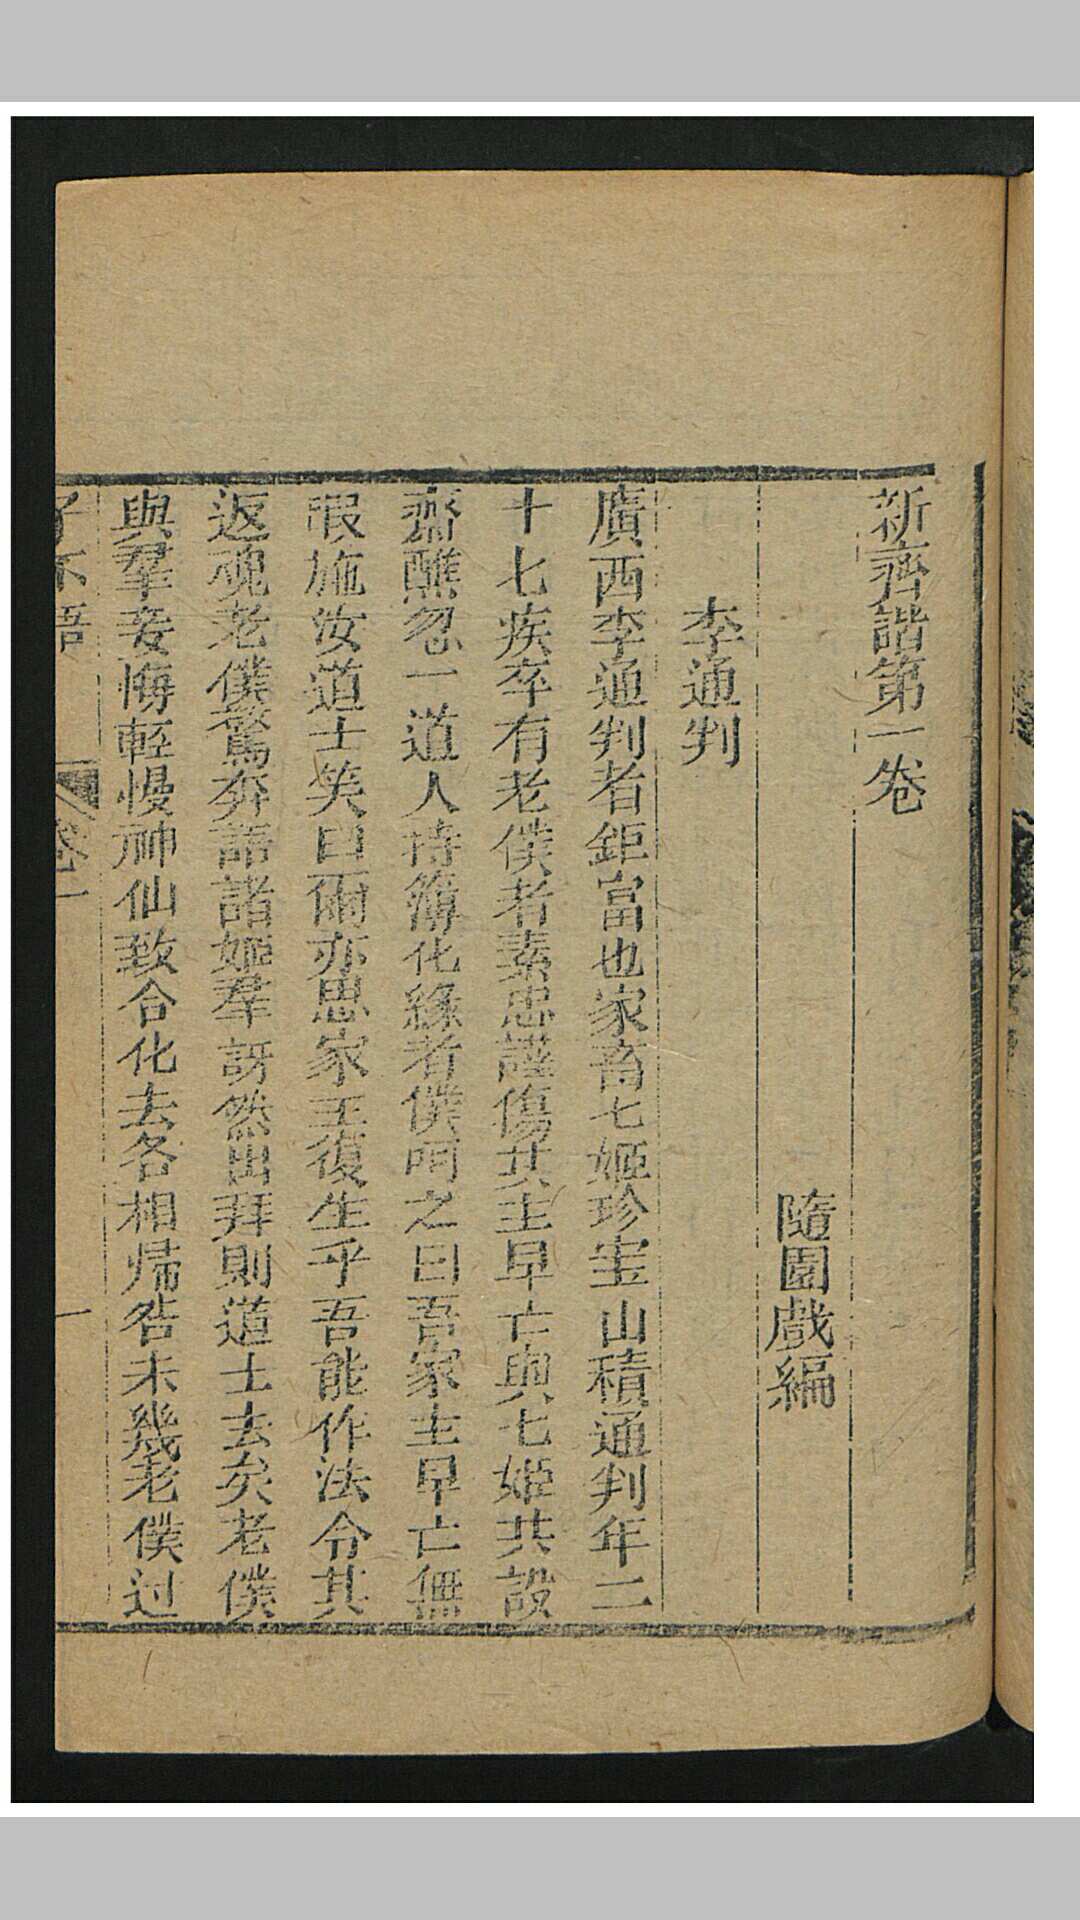 新齊諧第一卷
隨園戲編
李通判
廣西李通判者鉅富也家畜七姬珍宝山積通判年二
十七疾卒有老僕者素忠謹傷其主早亡與七姬共設
齋醮忽一道人持簿化緣者僕呵之曰吾家主早亡無
暇施汝道士笑曰爾亦思家主復生乎吾能作法令其
返魂老僕驚奔語諸姬羣訝然出拜則道士去矣老僕
與羣妾悔輕慢神仙致合化去各相歸咎未幾老僕过
子不語 卷一 一